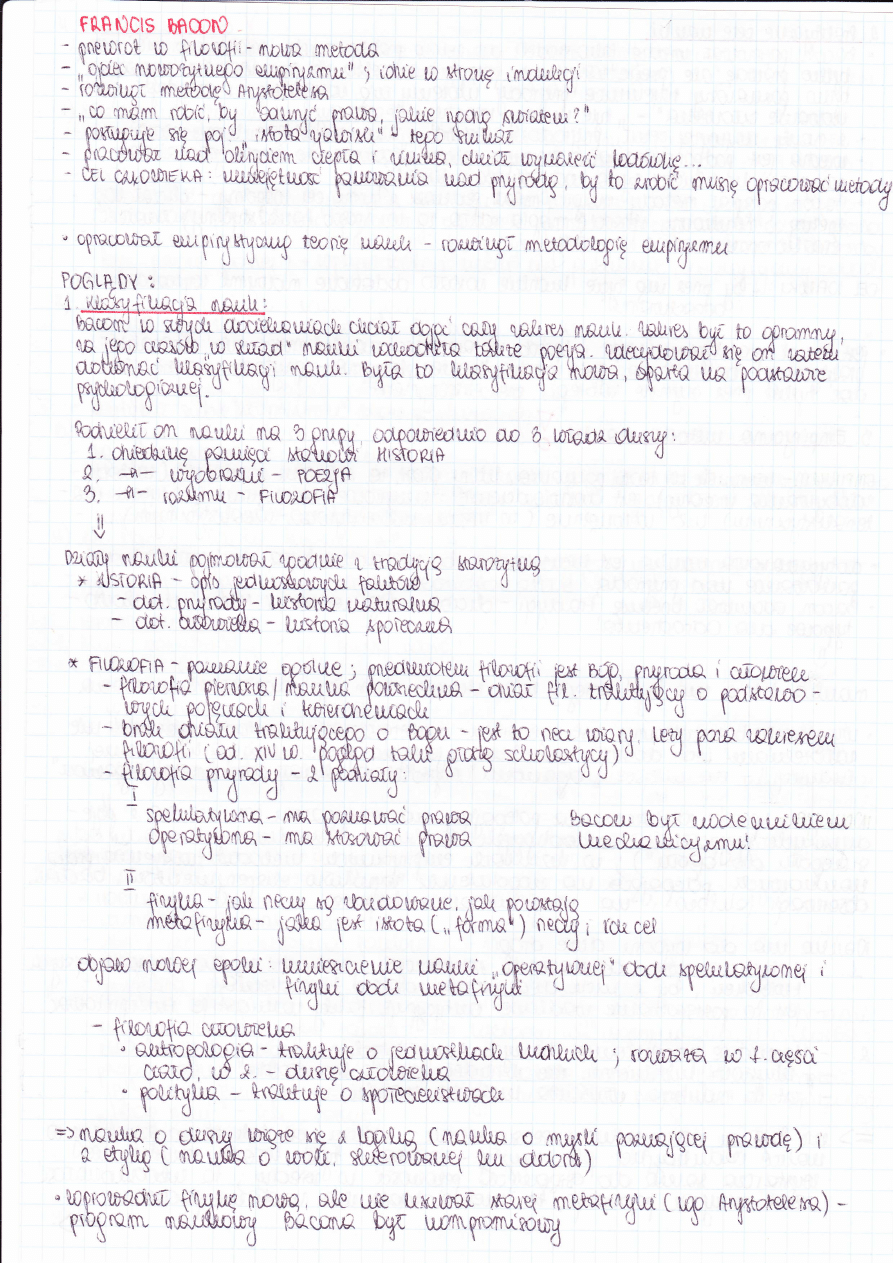 FRANCIS BACON
- przewrót w filozofii - nowa metoda
- „ojciec nowożytnego empiryzmu"; idzie w stronę indukcji
- rozwinął metodę Arystotelesa
- „co mam robić, by odkryć prawa, jakie rządzą światem?"
- posługuje się poj. „istota zjawiski" tego świat
- pracował nad odkryciem ciepła i zimna, chciał wynaleźć lodówkę...
- CEL CZŁOWIEKA: umiejętność panowania nad przyrodą, by to zrobić muszę opracować metody
• opracował empirystyczną teorię nauki - rozwinął metodologię empiryzmu
POGLĄDY:
1. Klasyfikacja nauk:
Bacon w swych dociekaniach chciał objąć cały zakres nauk. Zakres był to ogromny,
za jego czasów „w skład" nauki wchodziła także poezja. Zdecydował się on zatem
dokonać klasyfikacji nauk. Była to klasyfikacja nowa, oparta na podstawie
psychologicznej.
Podzielił on nauki na 3 grupy, odpowiednio do 3 władz duszy:
1. dziedzinę pamięci stanowi HISTORIA
2. -||- wyobraźni - POEZJA
3. -||- rozumu - FILOZOFIA
Działy nauki pojmował zgodnie z tradycją starożytną
* HISTORIA - opis jednostkowych faktów
- dot. przyrody - historia naturalna
- dot. człowieka - historia społeczna
* FILOZOFIA - poznanie ogólne; przedmiotem filozofii jest Bóg, przyroda i człowiek
- filozofia pierwsza / nauka powszechna - dział fil. traktujący o podstawo-
wych pojęciach i twierdzeniach
- brak działu traktującego o Bogu - jest to rzecz wiary, leży poza zakresem
filozofii (od. XIV w. pogląd taki głoszą scholastycy)
- filozofia przyrody - 2 podziały:
I
spekulatywna - ma poznawać prawa
operatywna - ma stosować prawa
Bacon był zwolennikiem
mechanicyzmu!
II
fizyka - jak rzeczy są zbudowane, jak powstają
metafizyka - jaka jest istota („forma") rzeczy i ich cel
objaw nowej epoki: umieszczenie nauki „operatywnej" obok spekulatywnej i
fizyki obok metafizyki
- filozofia człowieka
• antropologia - traktuje o jednostkach ludzkich; rozważa w 1. części
ciało, w 2. - duszę człowieka
• polityka - traktuje o społeczeństwach
=> nauka o duszy wiąże się z logiką (nauka o myśli poznającej prawdę) i
z etyką (nauka o woli, skierowanej ku dobru)
• wprowadził fizykę nową, ale nie usuwał starej metafizyki (wg Arystotelesa) -
program naukowy Bacona był kompromisowy